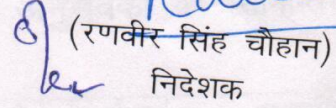 (रणवीर सिंह चौहान)
निदेशक